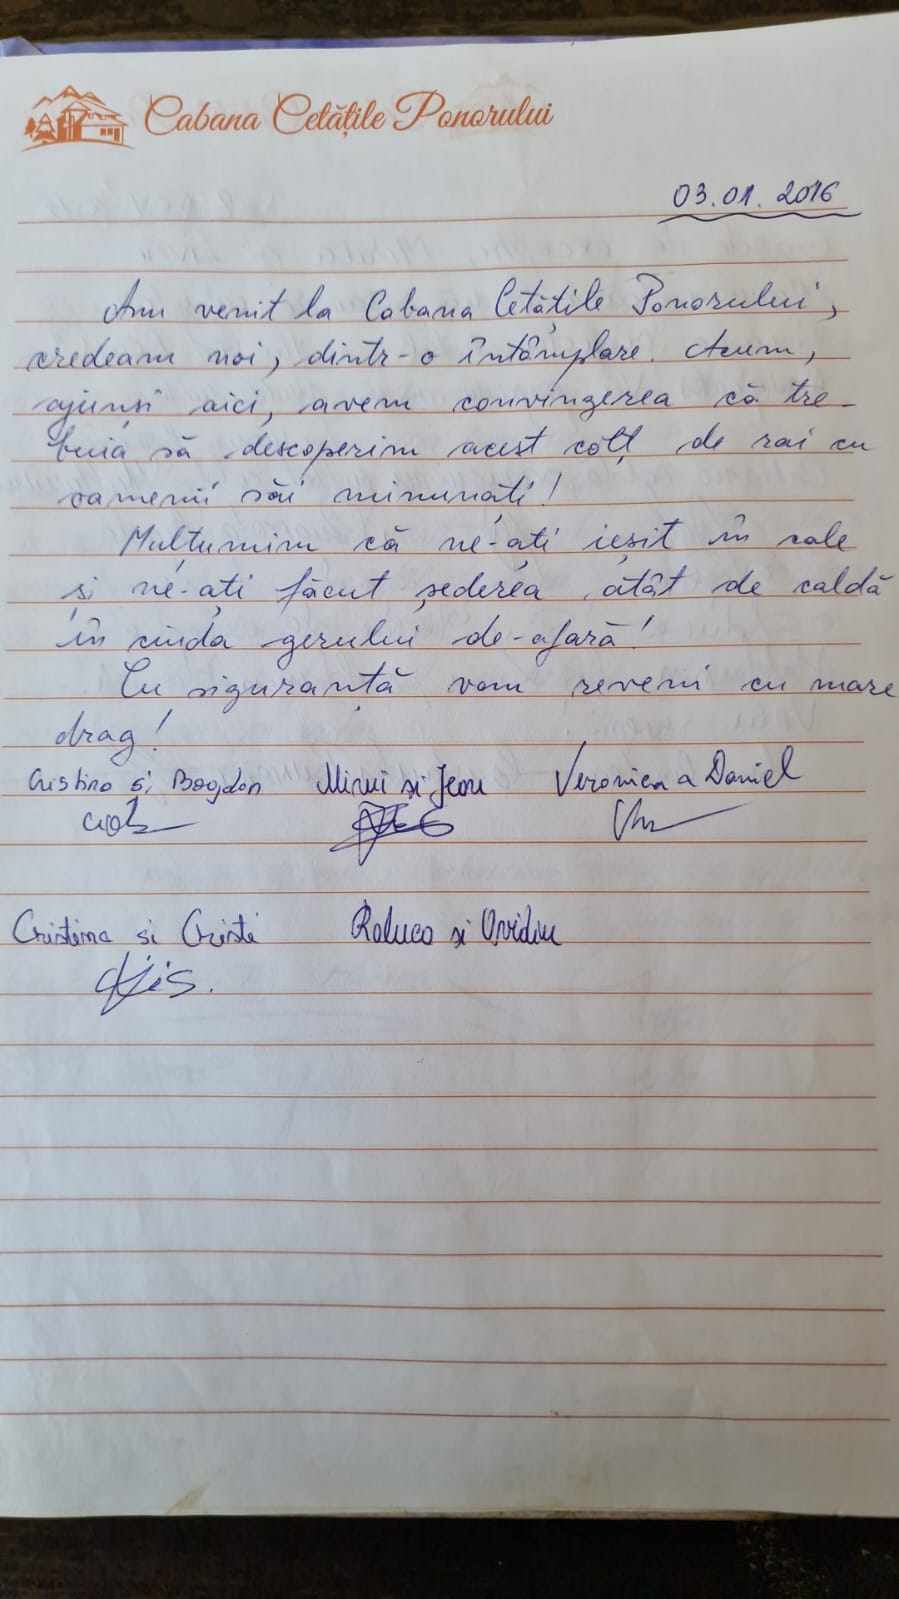 Cabana Cetățile Ponorului
03.01.2016
Am venit la Cabana Cetățile Ponorului,
credeam noi, dintr-o întâmplare. Acum,
ajunși aici, avem convingerea că tre-
buia să descoperim acest colț de rai cu
oamenii săi minunați!
Mulțumim că ne-ați ieșit în cale
și ne-ați făcut șederea atât de caldă
în ciuda gerului de-afară!
Cu siguranță vom reveni cu mare
drag!
Cristina și Bogdan Mimi si Jean Veronica a Daniel
Cristina si Cristi Raluca si Ovidiu